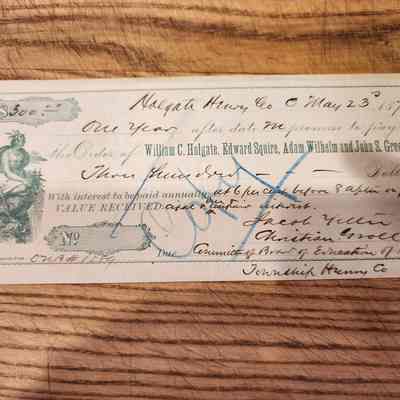 $300.00 Holgate Henry Co O May 23d 187
One Year after date We promise to pay
the Order of William C. Holgate, Edward Squire, Adam Wilhelm and John S. Gree
Three Hundred Doll
With interest to be paid annually at 6 per ct before & after
VALUE RECEIVED interest.
Jacob
No Christian
Due Committee of Board of Education of
Township Henry Co